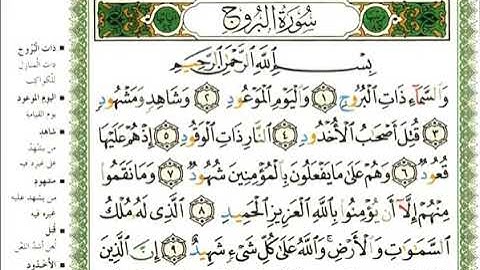 سُورَةُ البُرُوجِ
بِسْمِ اللَّهِ الرَّحْمَٰنِ الرَّحِيمِ
وَالسَّمَاءِ ذَاتِ الْبُرُوجِ ١ وَالْيَوْمِ الْمَوْعُودِ ٢ وَشَاهِدٍ وَمَشْهُودٍ
٣ قُتِلَ أَصْحَابُ الْأُخْدُودِ ٤ النَّارِ ذَاتِ الْوَقُودِ ٥ إِذْ هُمْ عَلَيْهَا
قُعُودٌ ٦ وَهُمْ عَلَىٰ مَا يَفْعَلُونَ بِالْمُؤْمِنِينَ شُهُودٌ ٧ وَمَا نَقَمُوا
مِنْهُمْ إِلَّا أَن يُؤْمِنُوا بِاللَّهِ الْعَزِيزِ الْحَمِيدِ ٨ الَّذِي لَهُ مُلْكُ
السَّمَاوَاتِ وَالْأَرْضِ ۚ وَاللَّهُ عَلَىٰ كُلِّ شَيْءٍ شَهِيدٌ ٩ إِنَّ الَّذِينَ
ذات البُرُوج
ذات المنازل
للكواكب
اليوم الموعود
يوم القيامة
شاهد
من يشهد
على غيره فيه
مشهود
من يشهد عليه
غيره فيه
قُتِل
لُعِن أشدَّ اللَّعْن
الأخدود